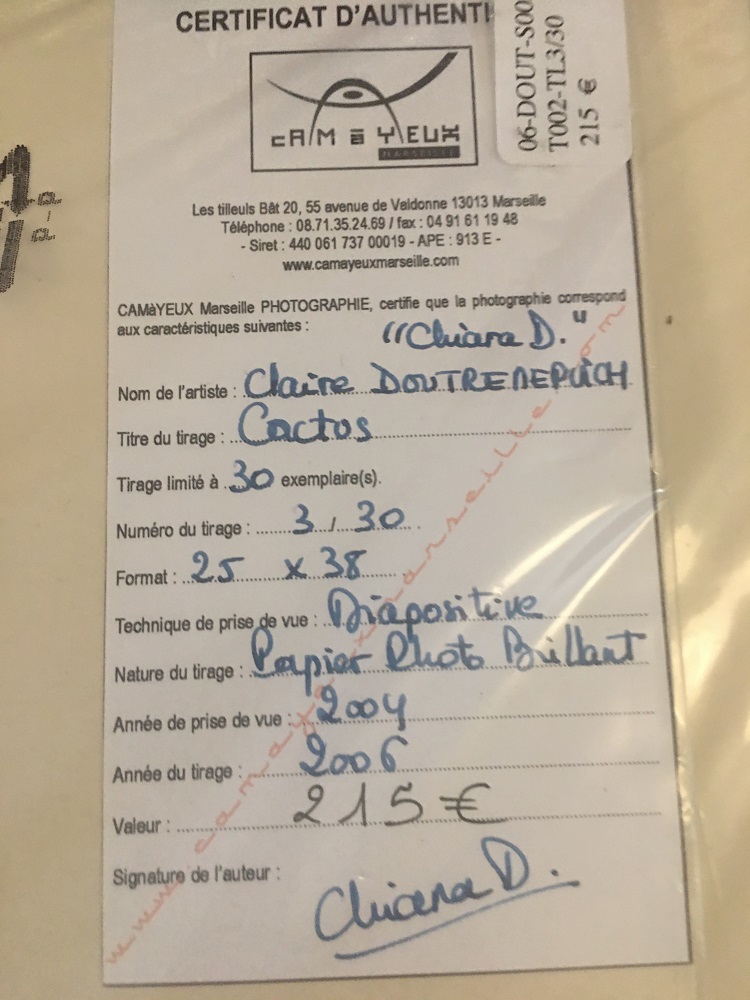 CERTIFICAT D'AUTHENTI
06-DOUT-S00
T002-TL3/30
215 €
CAMàYEUX
MARSEILLE
Les tilleuls Bât 20, 55 avenue de Valdonne 13013 Marseille
Téléphone : 08.71.35.24.69 / fax : 04 91 61 19 48
- Siret : 440 061 737 00019 - APE : 913 E -
www.camayeuxmarseille.com
CAMàYEUX Marseille PHOTOGRAPHIE, certifie que la photographie correspond
aux caractéristiques suivantes :
"Chiara D."
Nom de l'artiste : Claire DOUTREDEPUICH
Titre du tirage : Cactos
Tirage limité à 30 exemplaire(s).
Numéro du tirage : 3 / 30
Format : 25 x 38
Technique de prise de vue : Diapositive
Nature du tirage : Papier Photo Brillant
Année de prise de vue : 2004
Année du tirage : 2006
Valeur : 215 €
Signature de l'auteur :
Chiara D.
www.camayeuxmarseille.com